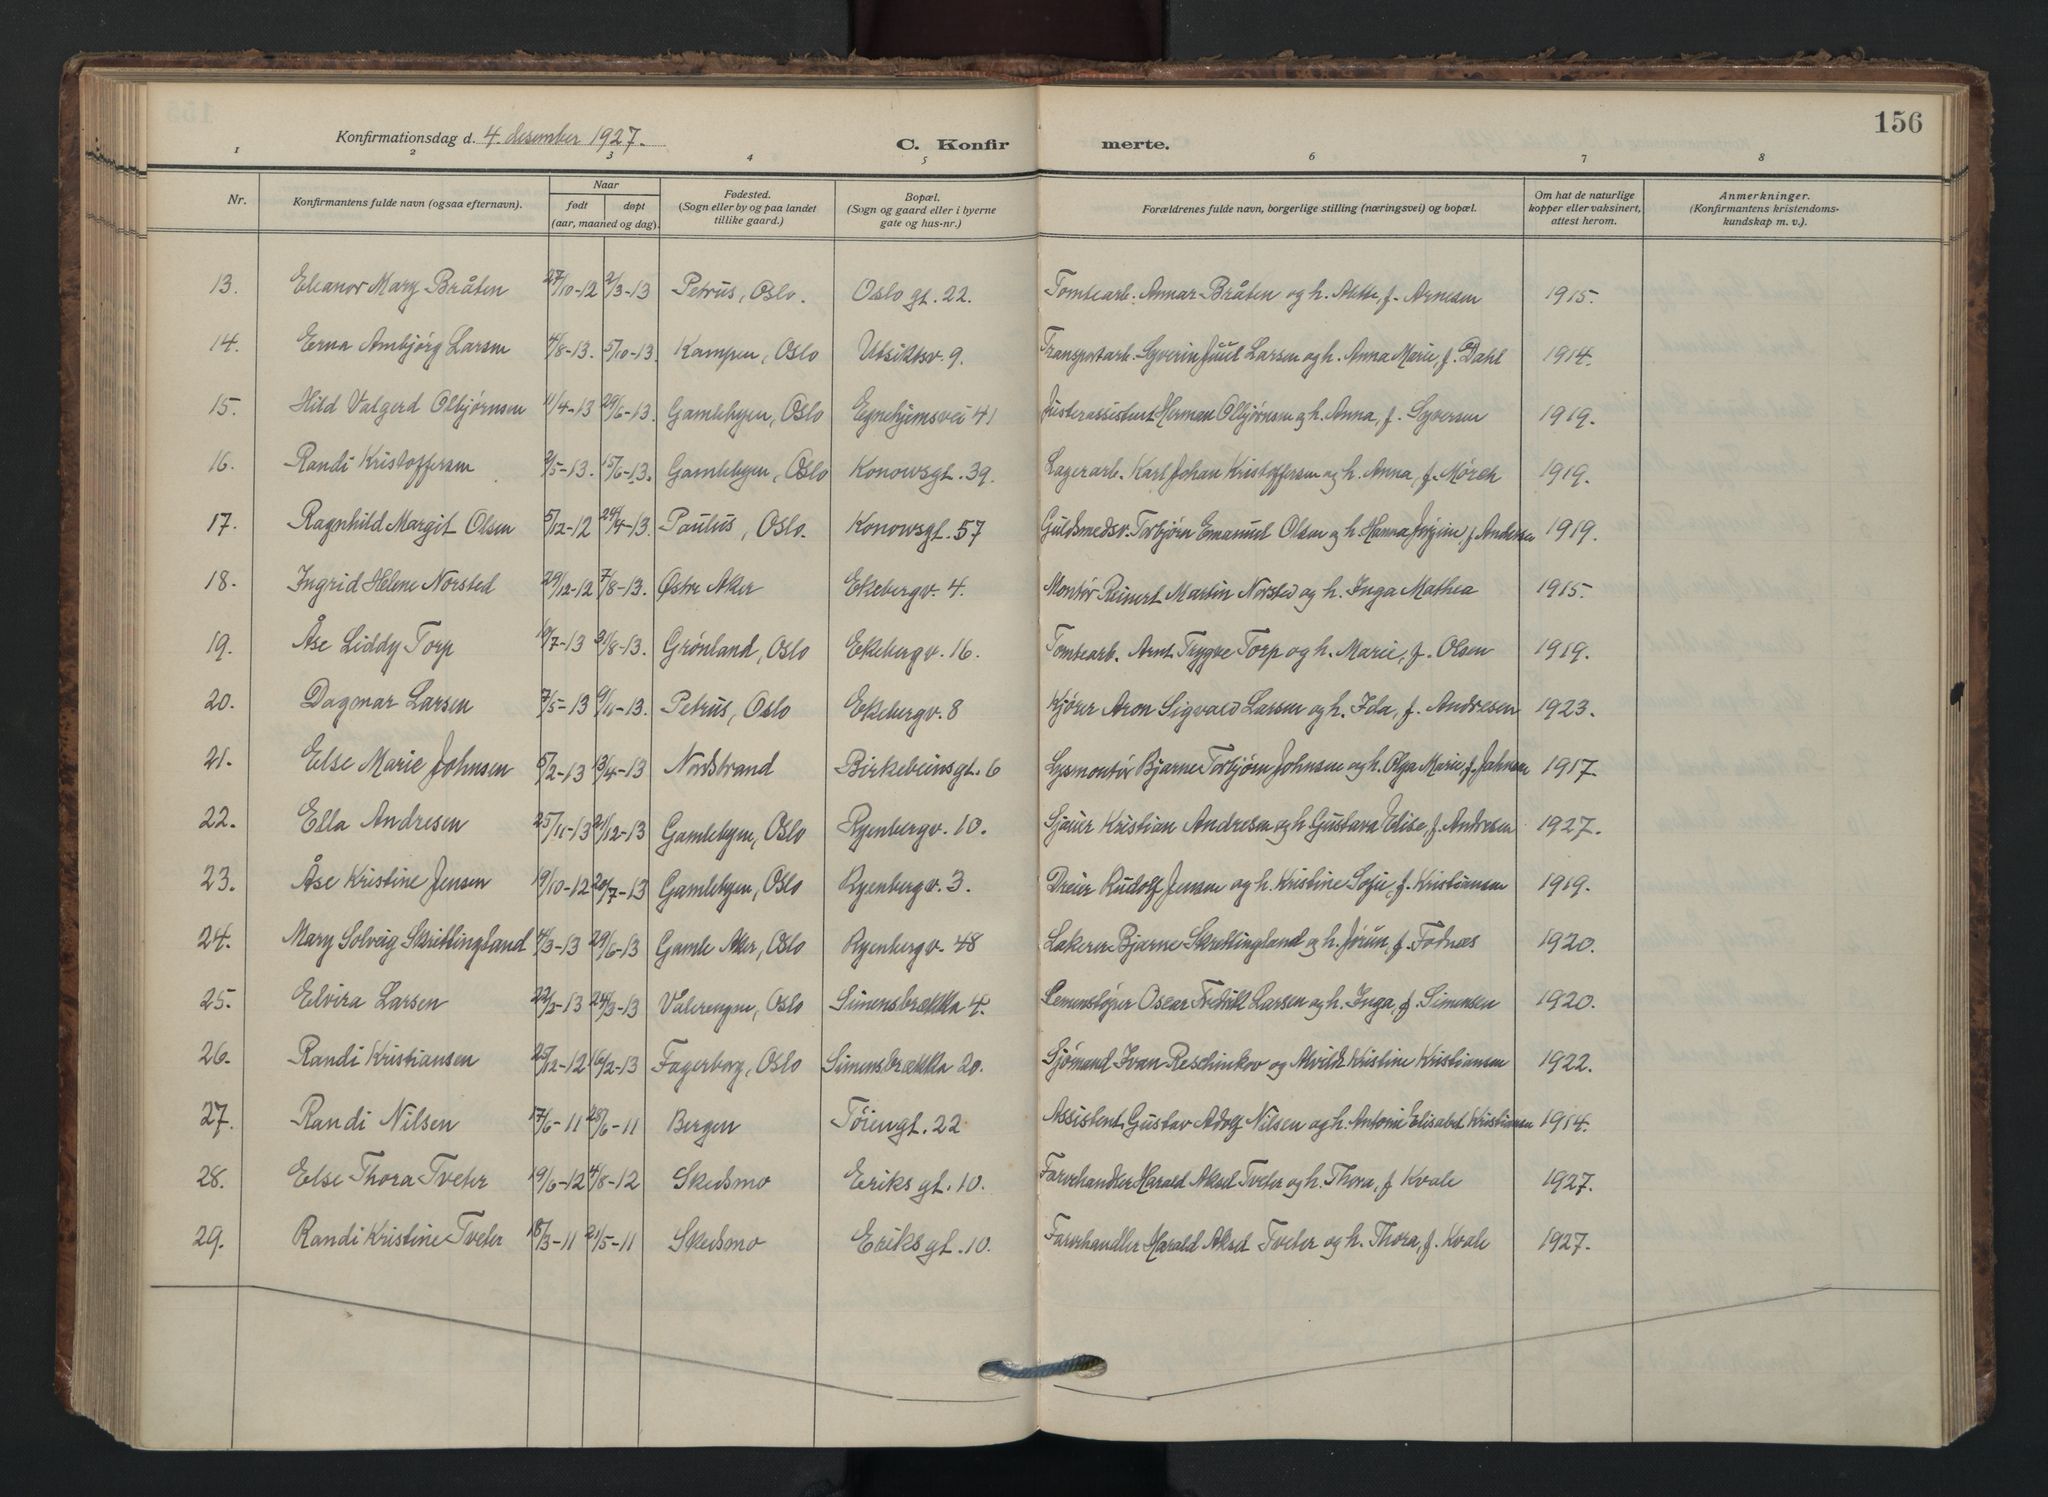 156
Konfirmationsdag d. 4. desember 1927.
C. Konfir merte.
1 2 3 4 5 6 7 8
Nr. Konfirmantens fulde navn (ogsaa efternavn). Naar født døpt (aar, maaned og dag). Fødested. (Sogn eller by og paa landet tillike gaard.) Bopæl. (Sogn og gaard eller i byerne gate og hus-nr.) Forældrenes fulde navn, borgerlige stilling (næringsvei) og bopæl. Om hat de naturlige kopper eller vaksinert, attest herom. Anmerkninger. (Konfirmantens kristendoms-kundskap m. v.).
13. Eleanor Mary Bråten 27/10-12 2/3-13 Petrus, Oslo. Oslo gt. 22. Tomtearb. Annar Bråten og h. Alette, f. Arnesen 1915.
14. Erna Ambjörg Larsen 4/8-13. 5/10-13. Kampen, Oslo Utsiktsv. 9. Transportarb. Syverin Juul Larsen og h. Anna Marie, f. Dahl 1914.
15. Hild Valgerd Olbjørnsen 11/4-13 29/6-13. Gamlebyen, Oslo Egnehjemsvei 41 Justerassistent Herman Olbjørnsen og h. Anna, f. Syversen 1919.
16. Randi Kristoffersen 2/5-13. 15/6-13. Gamlebyen, Oslo Konowsgt. 39. Lagerarb. Karl Johan Kristoffersen og h. Anna, f. Mörch 1919.
17. Ragnhild Margit Olsen 5/12-12 24/4-13. Paulus, Oslo. Konowsgt. 57 Guldsmedsv. Torbjørn Emanuel Olsen og h. Hanna Jørgine f. Andersen 1919.
18. Ingrid Helene Norsted 29/12-12 7/8-13. Østre Aker Ekebergv. 4. Montør Reinert Martin Norsted og h. Inga Mathea 1915.
19. Åse Liddy Torp 19/7-13 31/8-13. Grönland, Oslo Ekebergv. 16. Tomtearb. Arnt Trygve Torp og h. Marie, f. Olsen 1919.
20. Dagmar Larsen 7/5-13 9/11-13. Petrus, Oslo Ekebergv. 8 Kjörer Aron Sigvald Larsen og h. Ida, f. Andresen 1923.
21. Else Marie Johnsen 5/2-13 13/4-13 Nordstrand Birkebeinsgt. 6 Lysmontör Bjarne Torbjörn Johnsen og h. Olga Marie, f. Johnsen 1917.
22. Ella Andresen 25/11-13 21/12-13 Gamlebyen, Oslo Ryenbergv. 10. Sjauer Kristian Andresen og h. Gustava Elise, f. Andresen 1927.
23. Åse Kristine Jensen 19/10-12 20/7-13 Gamlebyen, Oslo Ryenbergv. 3. Dreier Rudolf Jensen og h. Kristine Sofie, f. Kristiansen 1919.
24. Mary Solveig Skrettingland 4/3-13 29/6-13 Gamle Aker, Oslo Ryenbergv. 48 Lakerer Bjarne Skrettingland og h. Jörun, f. Fodnæs 1920.
25. Elvira Larsen 22/2-13 24/3-13 Vålerengen, Oslo Simensbrækka 4. Oscar Fredrik Larsen og h. Inga, f. Simensen 1920.
26. Randi Kristiansen 25/12-12 16/2-13 Fagerborg, Oslo Simensbrækka 20. Sjömand Ivan Reschinkov og Alvilde Kristine Kristiansen 1922.
27. Randi Nilsen 17/6-11 28/6-11 Bergen Töiengt. 22 Assistent Gustav Adolf Nilsen og h. Antonie Elisabet Kristiansen 1914.
28. Else Thora Tveter 19/6-12 4/8-12 Skedsmo Eriks gt. 10. Farvehandler Harald Aksel Tveter og h. Thora, f. Kvale 1927.
29. Randi Kristine Tveter 18/3-11 21/5-11 Skedsmo Eriks gt. 10. Farvehandler Harald Aksel Tveter og h. Thora, f. Kvale 1927.